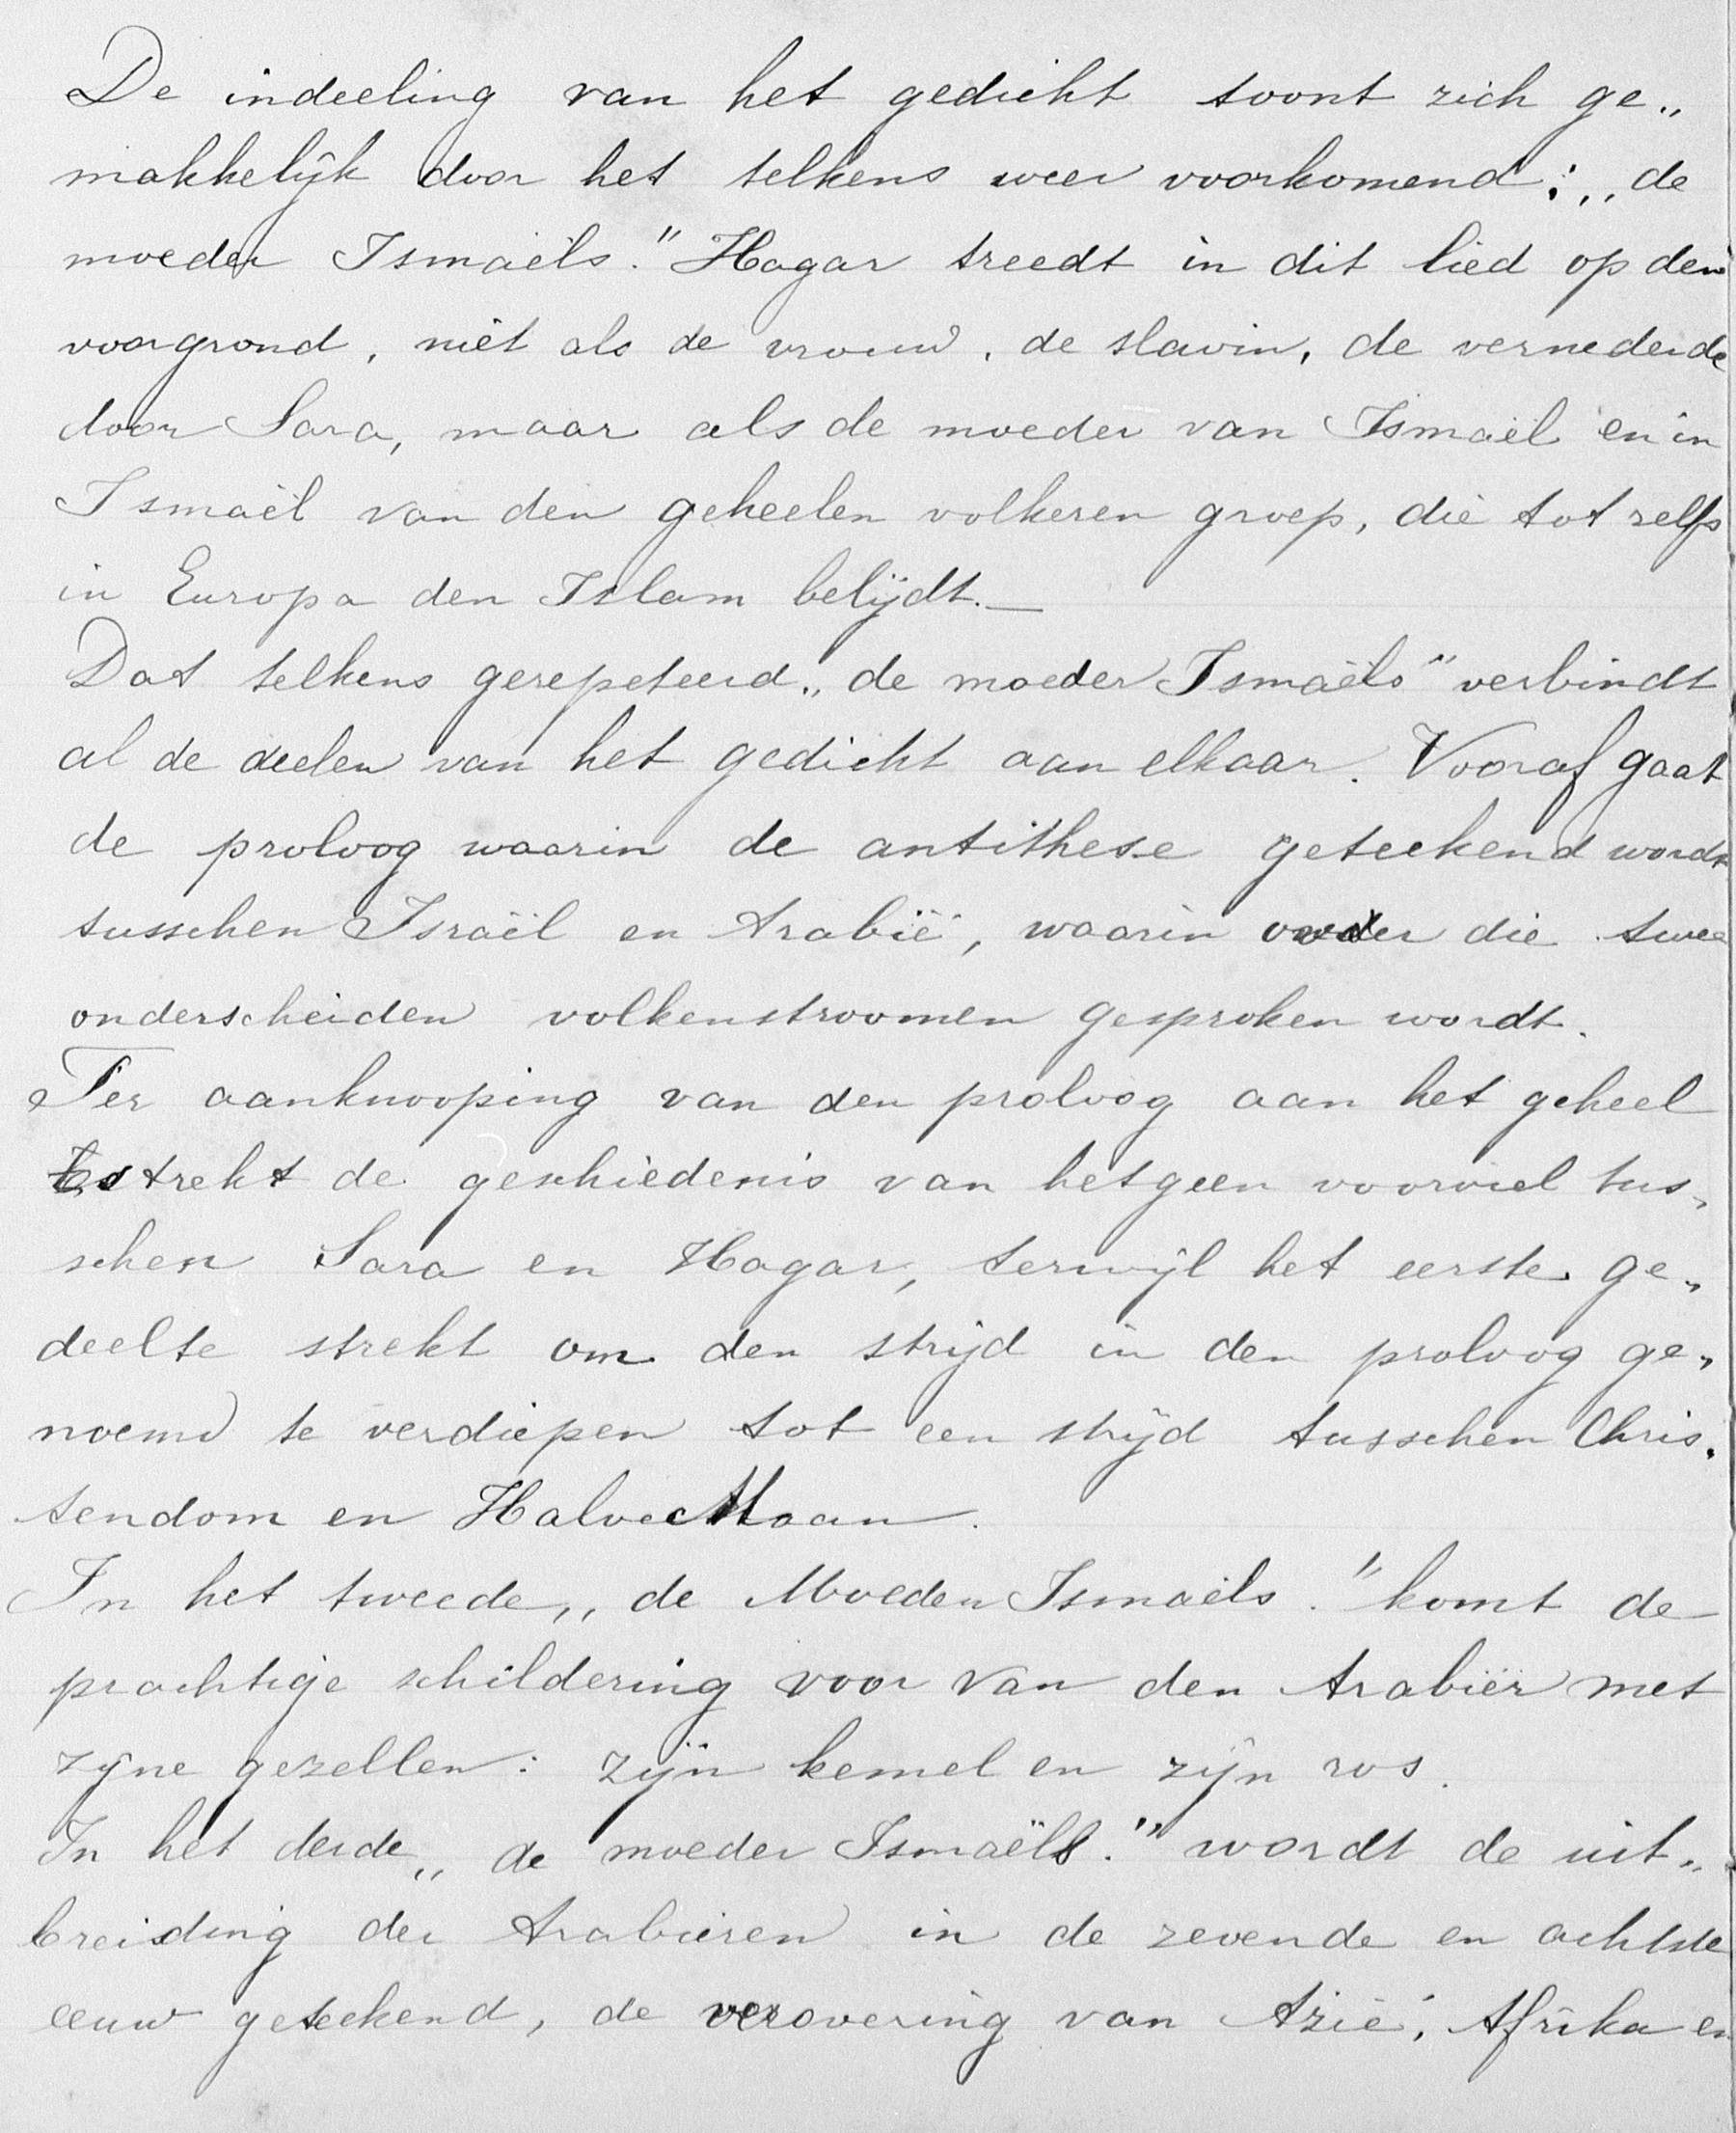 De indeeling van het gedicht toont zich ge„
makkelijk door het telkens weer voorkomend: „de
moeder Ismaëls." Hagar treedt in dit lied op den
voorgrond, niet als de vrouw, de slavin, de vernederde
door Sara, maar als de moeder van Ismaël en in
Ismaël van den geheelen volkeren groep, die tot zelfs
in Europa den Islam belijdt.—
Dat telkens gerepeteerd „de moeder Ismaëls" verbindt
al de deelen van het gedicht aan elkaar. Vooraf gaat
de proloog waarin de antithese geteekend wordt
tusschen Israël en Arabië, waarin over die twee
onderscheiden volkenstroomen gesproken wordt.
Ter aanknooping van den proloog aan het geheel
strekt de geschiedenis van hetgeen voorviel tus„
schen Sara en Hagar, terwijl het eerste ge„
deelte strekt om den strijd in den proloog ge„
noemd te verdiepen tot een strijd tusschen Chris„
tendom en Halve Maan.
In het tweede „de Moeder Ismaëls." komt de
prachtige schildering voor van den Arabier met
zijne gezellen: zijn kemel en zijn ros.
In het derde „de moeder Ismaëls." wordt de uit„
breiding der Arabieren in de zevende en achtste
eeuw geteekend, de verovering van Azië, Afrika en